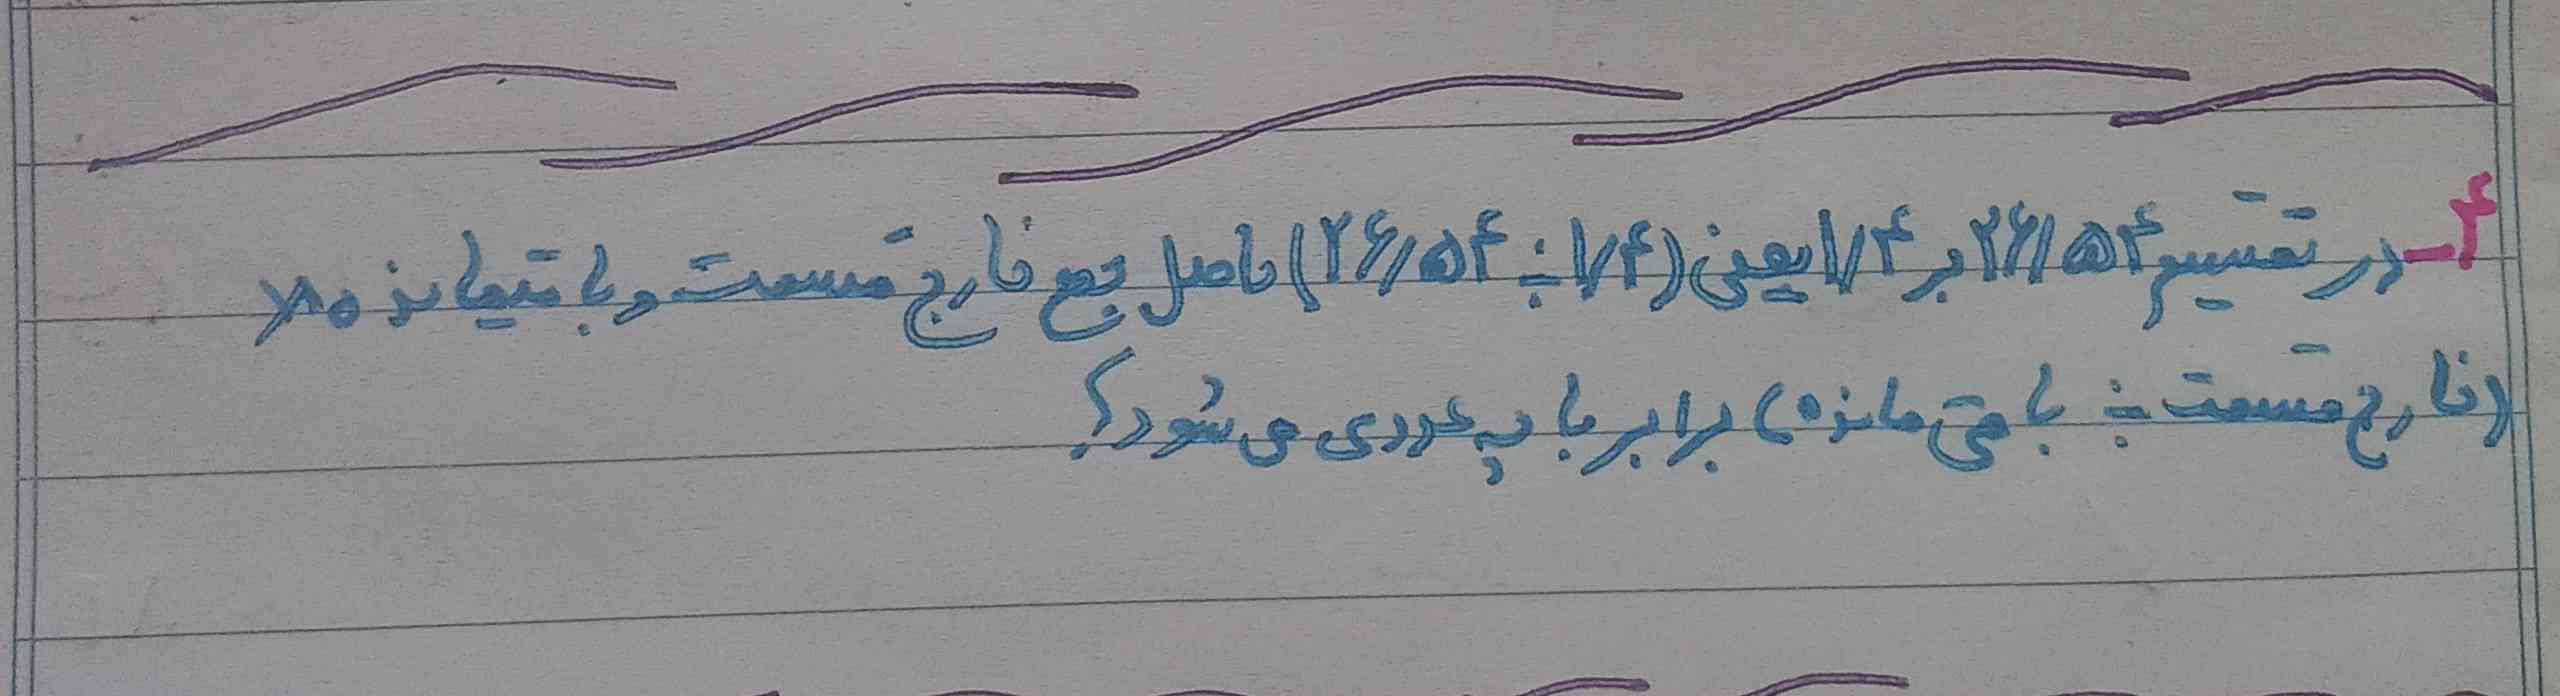 ۴- در تقسیم ۲۶/۵۴ بر ۱/۴ یعنی (۱/۴ ÷ ۲۶/۵۴) حاصل جمع خارج قسمت و باقیمانده
(خارج قسمت ÷ باقی مانده) برابر با چه عددی می شود؟